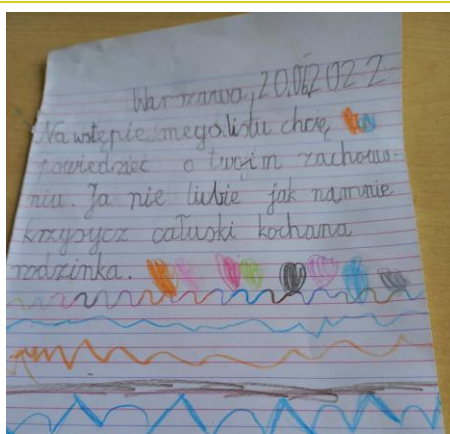 Warszawa, 20.06.2022
Na wstępie mego listu chcę
powiedzieć o twoim zachowa-
niu. Ja nie lubie jak namnie
krzysycz całuski kochana
rodzinka.